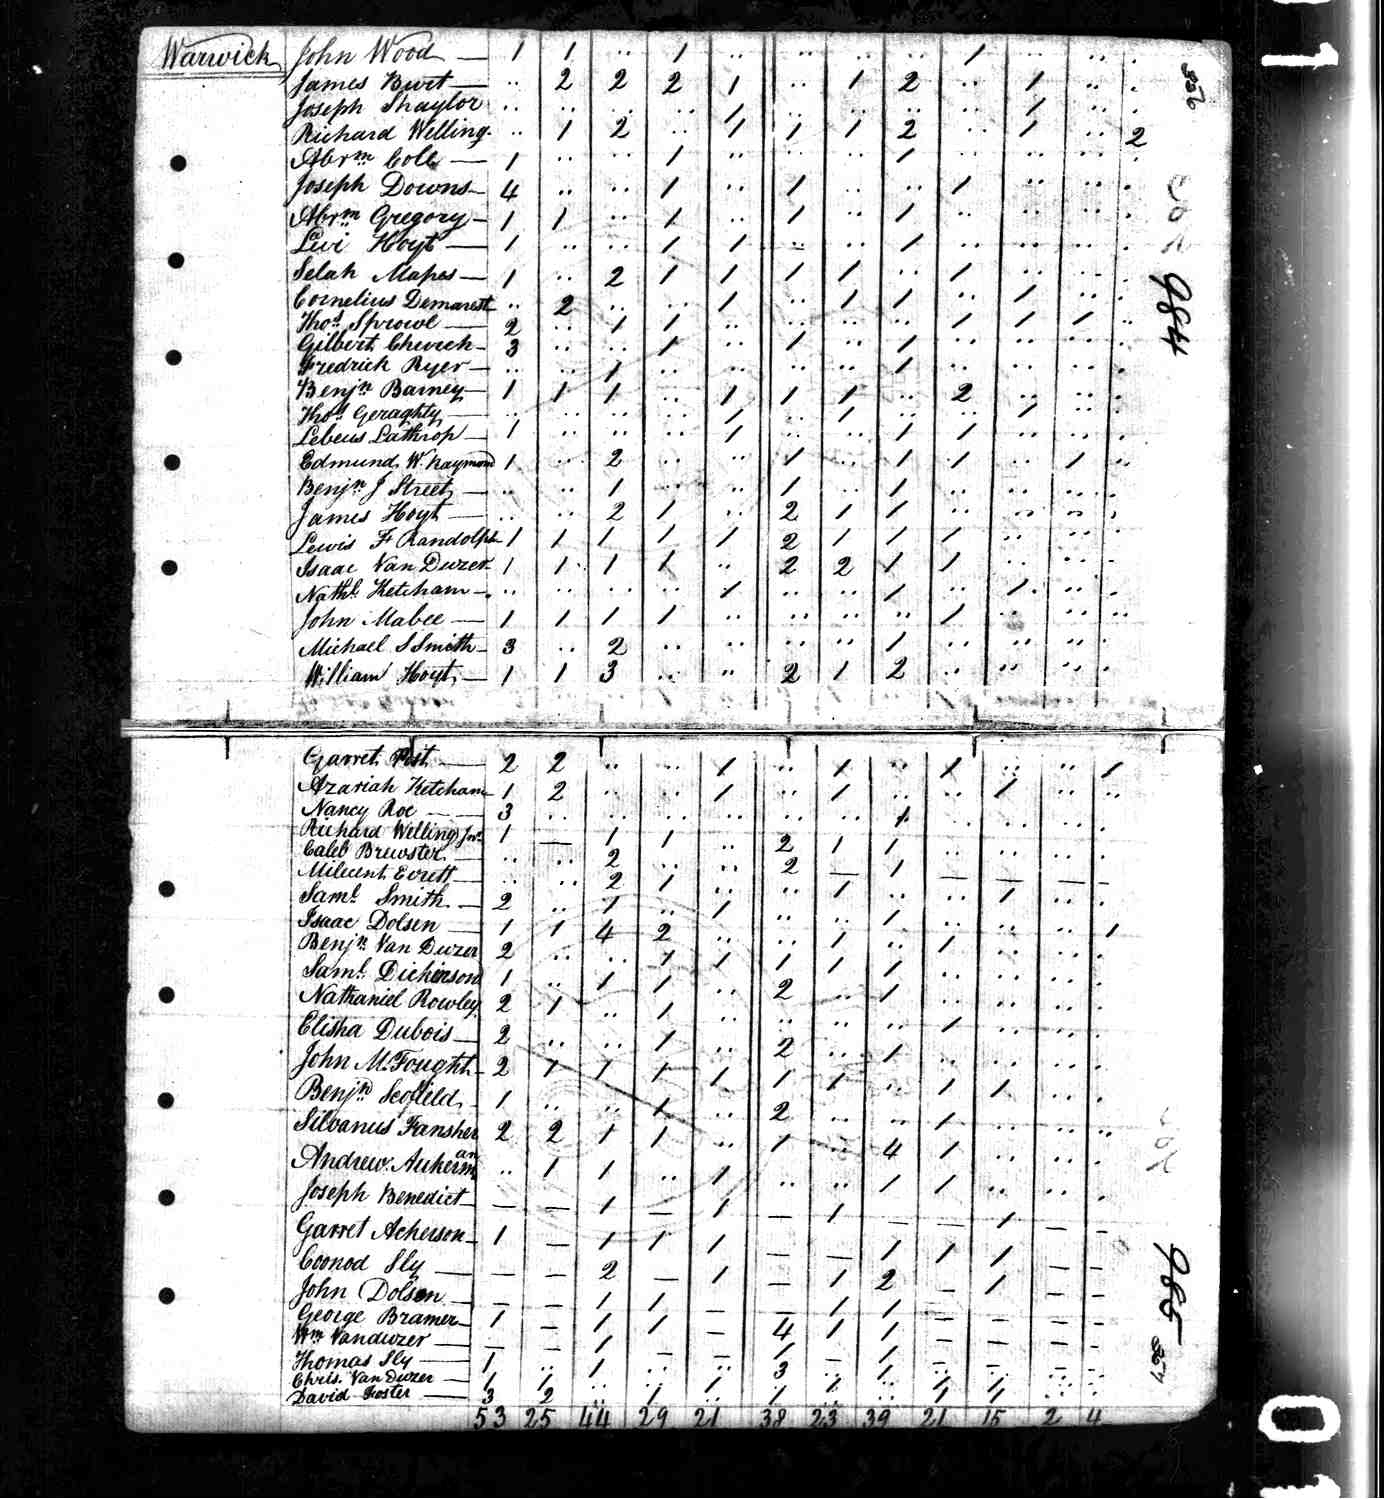 Warwick John Wood — 1 1 .. 1 .. .. .. .. 1 .. .. .
James Burt — .. 2 2 2 1 .. 1 2 .. 1 .. .
Joseph Shaylor .. .. .. .. 1 .. .. .. .. 1 .. .
Richard Welling .. 1 2 .. 1 1 1 2 .. 1 .. 2
Abrm Cole — 1 .. .. 1 .. .. .. 1 .. .. .. .
Joseph Downs — 4 .. .. 1 .. 1 .. .. 1 .. .. .
Abrm Gregory — 1 1 .. 1 .. 1 .. 1 .. .. .. .
Levi Hoyt — 1 .. .. 1 1 .. .. 1 .. .. .. .
Selah Mapes — 1 .. 2 1 1 1 1 .. 1 .. .. .
Cornelius Demarest .. 2 .. .. 1 .. 1 1 .. 1 .. .
Thos Sprowl — 2 .. 1 1 .. .. .. .. 1 1 1 ..
Gilbert Church — 3 .. .. 1 .. 1 .. 1 .. .. .. .
Fredrick Ryer — .. .. 1 .. .. .. .. 1 .. .. .. .
Benjn Barney — 1 1 1 .. 1 1 1 .. 2 .. .. .
Thos Geraghty — .. .. .. .. 1 .. 1 .. .. 1 .. .
Lebeus Lathrop — 1 .. .. .. 1 .. .. 1 1 .. .. .
Edmund W. Raymond 1 .. 2 .. .. 1 .. 1 1 .. 1 ..
Benjn J Street — .. .. 1 .. .. 1 .. 1 .. .. .. .
James Hoyt — .. .. 2 1 .. 2 1 1 .. .. .. .
Lewis F Randolph 1 1 1 1 1 2 1 1 1 .. .. .
Isaac Van Duzer 1 1 1 1 .. 2 2 1 1 .. .. .
Nathl Ketcham — .. .. .. .. 1 .. .. 1 .. 1 .. .
John Mabee — 1 1 1 1 .. .. .. .. 1 .. .. ..
Michael S Smith — 3 .. 2 .. .. .. .. 1 .. .. .. .
William Hoyt — 1 1 3 .. .. 2 1 2 .. .. .. .
336
984
Garret Post — 2 2 .. .. 1 .. 1 .. 1 .. .. 1
Azariah Ketcham 1 2 .. .. 1 .. 1 .. .. 1 .. ..
Nancy Roe — 3 .. .. .. .. .. .. 1 .. .. .. .
Richard Welling Jnr 1 — 1 1 .. 2 1 1 .. .. .. .
Caleb Brewster — .. .. 2 .. .. 2 — 1 — — — —
Milicent Evrett — .. .. 2 1 .. .. 1 .. .. 1 .. .
Saml Smith — 2 .. 1 .. 1 .. .. 1 .. .. .. 1
Isaac Dolsen — 1 1 4 2 .. .. 1 .. 1 .. .. .
Benjn Van Duzer 2 .. .. 1 1 1 1 1 .. .. .. .
Saml Dickerson 1 .. 1 1 .. 2 .. 1 .. .. .. .
Nathaniel Rowley 2 1 .. 1 .. .. .. .. 1 .. .. .
Elisha Dubois — 2 .. .. 1 .. 2 .. 1 .. .. .. .
John McFought — 2 1 1 1 1 1 1 .. 1 1 .. .
Benjn Scofield 1 .. .. 1 .. 2 .. .. 1 .. .. ..
Silvanus Fansher 2 2 1 1 .. 1 .. 4 1 .. .. .
Andrew Aukerman .. 1 1 .. 1 .. .. 1 1 .. .. .
Joseph Benedict — — — 1 — 1 — 1 — — 1 — .
Garret Acherson — 1 — 1 1 1 — — 1 1 1 — —
Coonod Sly — — — 2 — 1 — 1 2 — 1 — —
John Dolsen — — — 1 1 — — 1 1 — — — —
George Bramer — 1 — 1 1 — 4 1 1 — — — —
Wm Vanduzer — — — 1 — — 1 — 1 — — — —
Thomas Sly — 1 .. 1 .. .. 3 .. 1 — — — —
Chris. Van Duzer — 1 1 .. .. 1 .. 1 .. 1 1 .. .
David Foster — 3 2 .. 1 .. 1 .. .. 1 1 .. .
53 25 44 29 21 38 23 39 21 15 2 4
985
337
1
0